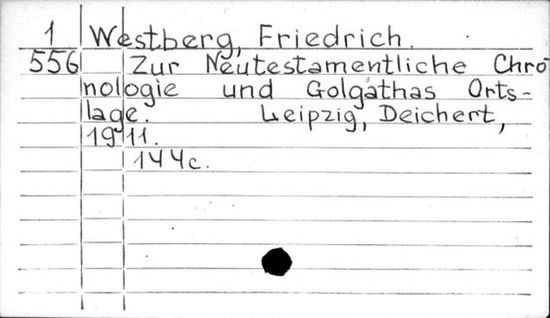 1 Westberg, Friedrich.
556 Zur Neutestamentliche Chro
nologie und Golgathas Orts-
lage. Leipzig, Deichert,
1911.
144c.